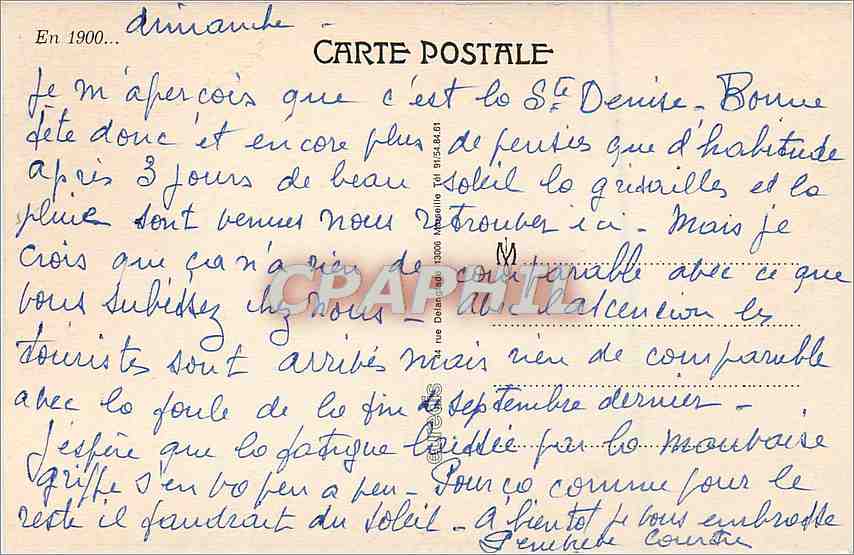 En 1900... dimanche -
CARTE POSTALE
Je m'aperçois que c'est la Ste Denise - Bonne
fête donc et encore plus de pensées que d'habitude
après 3 jours de beau soleil la grisailles et la
pluie sont venues nous retrouver ici - Mais je
crois que ça n'a rien de comparable avec ce que
vous subissez chez nous - Avec l'ascencion les
touristes sont arrivés mais rien de comparable
avec la foule de la fin septembre dernier -
J'espère que la fatigue laissée par la mauvaise
grippe s'en va peu à peu - Pour ça comme pour le
reste il faudrait du soleil - A bientôt je vous embrasse
44 rue Delanglade 13006 Marseille Tél 91/54.84.61
CPAPHIL